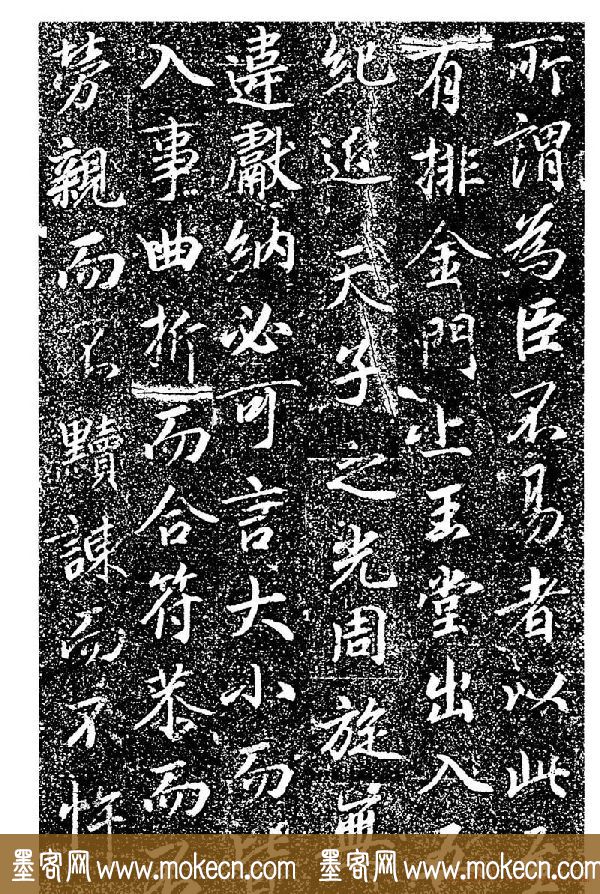 所謂為臣不易者以此
有排金門上玉堂出入
紀近天子之光周旋無
違獻納必可言大小而皆
入事曲折而合符恭而
勞親而不黷諫而不忤
墨客网 www.mokecn.com 墨客网 www.mokecn.com